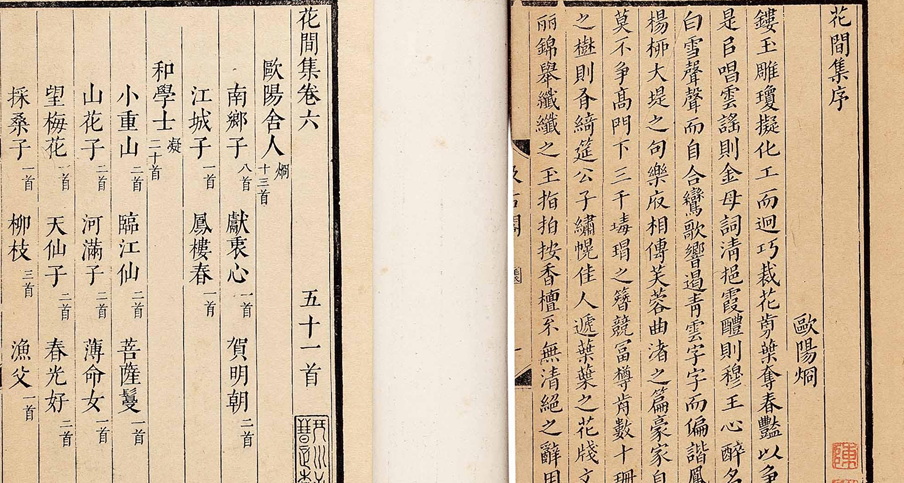 花間集序
歐陽烱
鏤玉雕瓊擬化工而迥巧裁花剪葉奪春豔以爭
是㠯唱雲謠則金母詞清挹霞醴則穆王心醉名
白雪聲聲而自合鸞歌響遏青雲字字而偏諧鳳
楊栁大堤之句樂府相傳芙蓉曲渚之篇豪家自
莫不爭髙門下三千瑇瑁之簪競冨樽前數十珊
之樹則有綺筵公子繡幌佳人遞葉葉之花牋文
麗錦舉纖纖之玉指拍按香檀不無清絕之辭用
花間集卷六
五十一首
歐陽舍人烱十三首
南鄉子八首 獻衷心一首 賀明朝二首
江城子一首 鳳樓春一首
和學士凝二十首
小重山二首 臨江仙二首 菩薩鬘一首
山花子二首 河滿子二首 薄命女一首
望梅花一首 天仙子二首 春光好二首
採桑子一首 柳枝三首 漁父一首